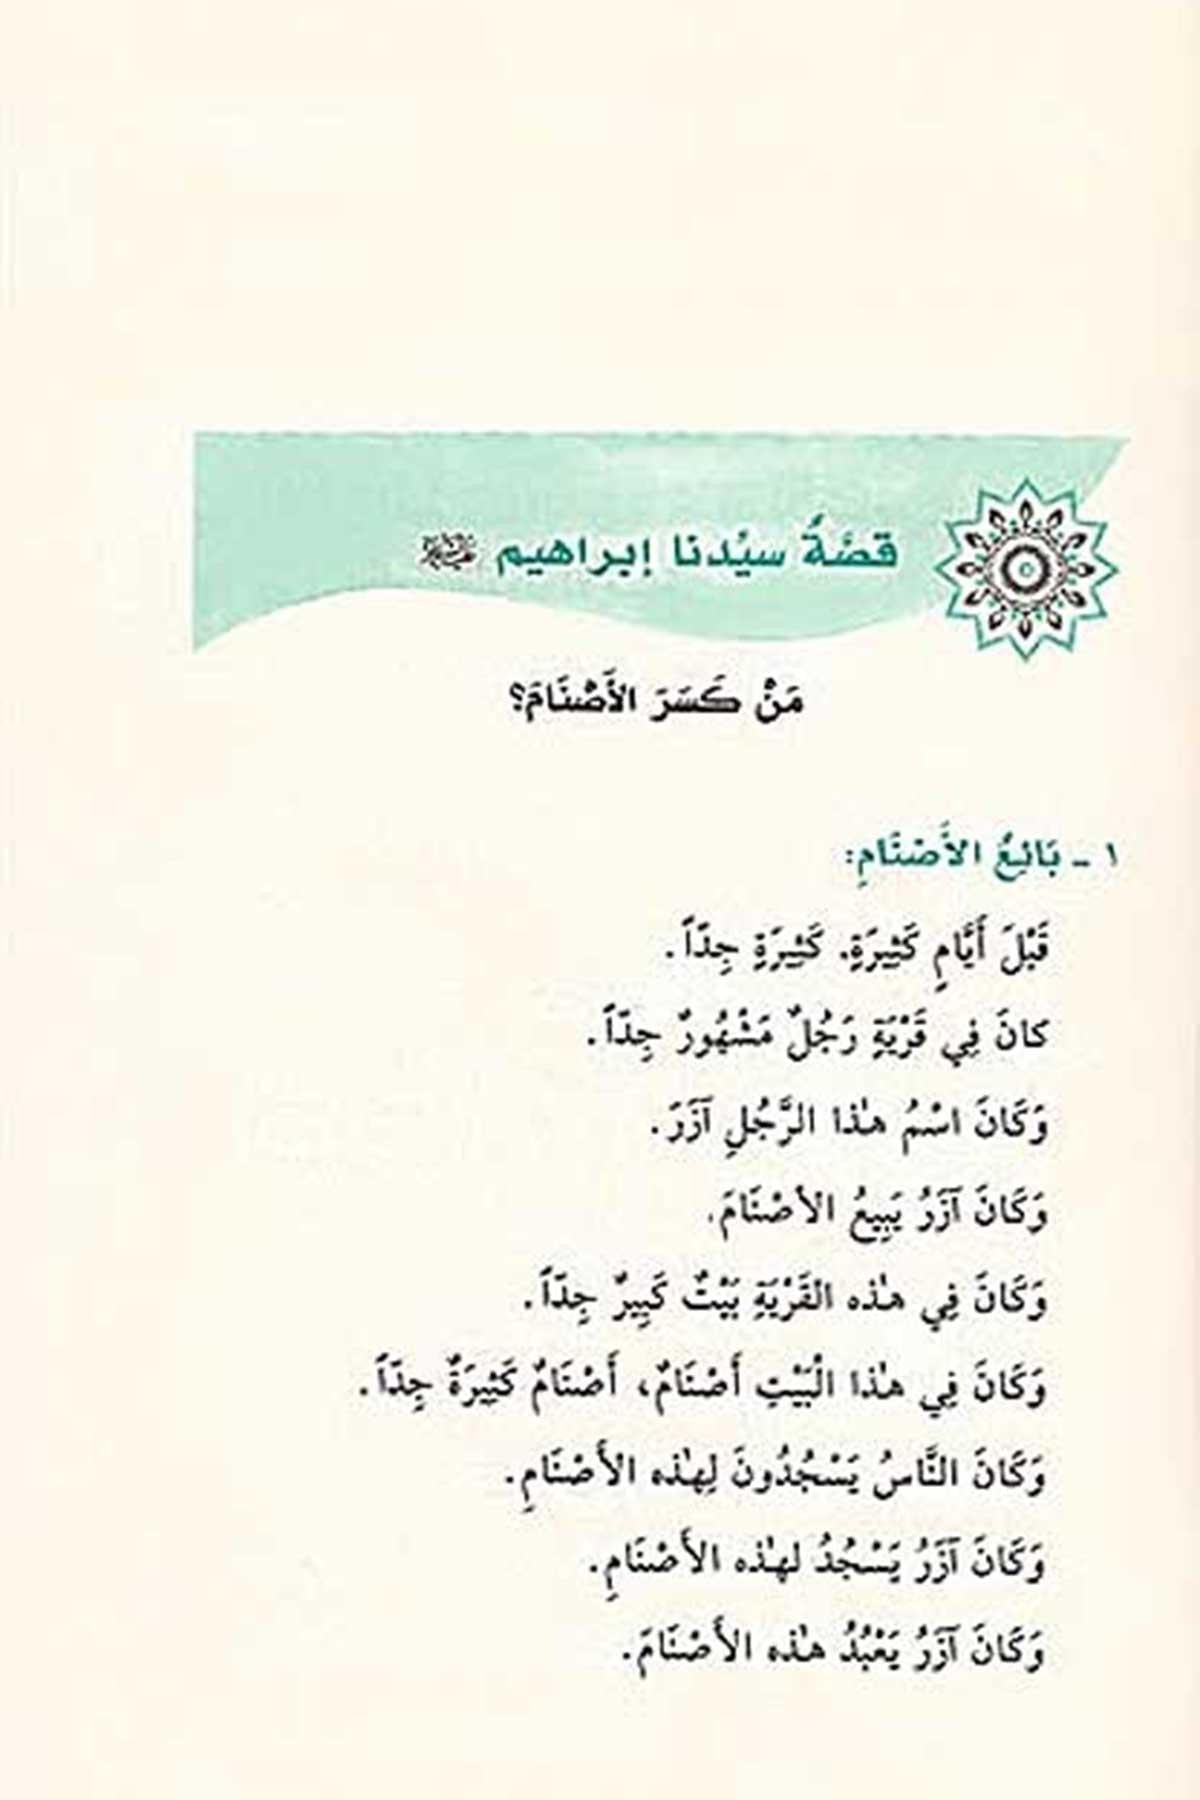 قصَّةُ سيِّدنا إبراهيم
مَنْ كَسَرَ الأَصْنَامَ؟
١ - بَائِعُ الأَصْنَامِ:
قَبْلَ أَيَّامٍ كَثِيرَةٍ. كَثِيرَةٍ جِدّاً.
كانَ فِي قَرْيَةٍ رَجُلٌ مَشْهُورٌ جِدّاً.
وَكَانَ اسْمُ هٰذا الرَّجُلِ آزَرَ.
وَكَانَ آزَرُ يَبِيعُ الأصْنَامَ.
وَكَانَ فِي هٰذه القَرْيَةِ بَيْتٌ كَبِيرٌ جِدّاً.
وَكَانَ فِي هٰذا الْبَيْتِ أَصْنَامٌ، أَصْنَامٌ كَثِيرَةٌ جِدّاً.
وَكَانَ النَّاسُ يَسْجُدُونَ لِهٰذه الأَصْنَامِ.
وَكَانَ آزَرُ يَسْجُدُ لهٰذه الأَصْنَامِ.
وَكَانَ آزَرُ يَعْبُدُ هٰذه الأَصْنَامَ.